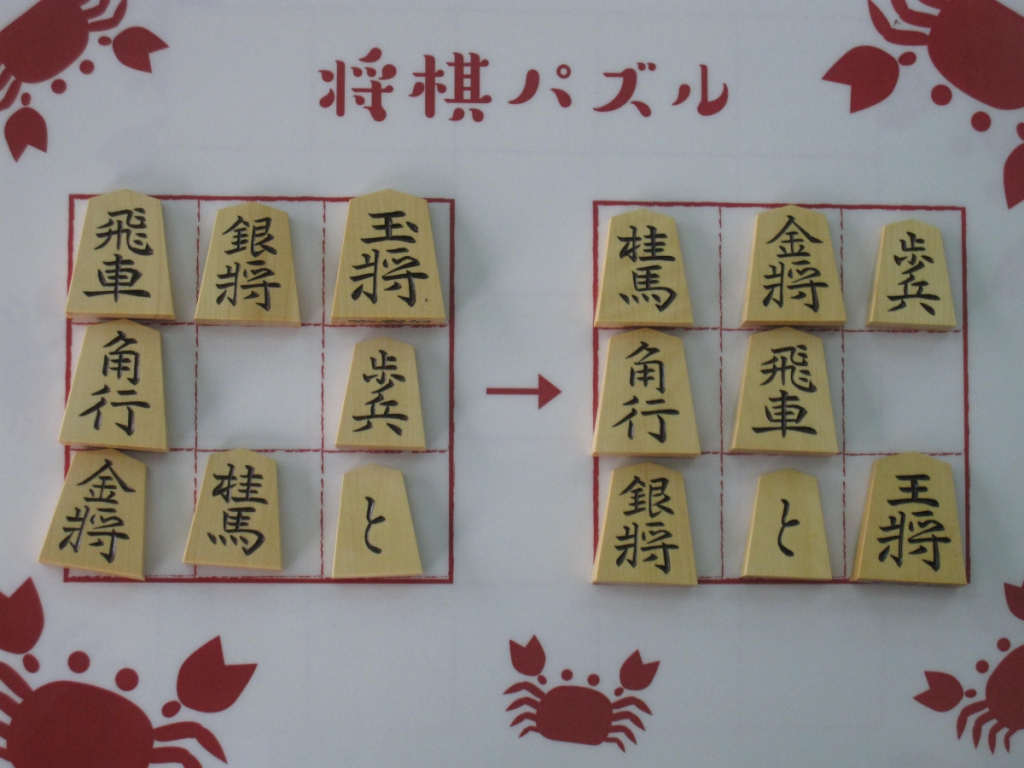 将棋パズル
飛車 銀将 玉将
角行 歩兵
金将 桂馬 と
桂馬 金将 歩兵
角行 飛車
銀将 と 王将